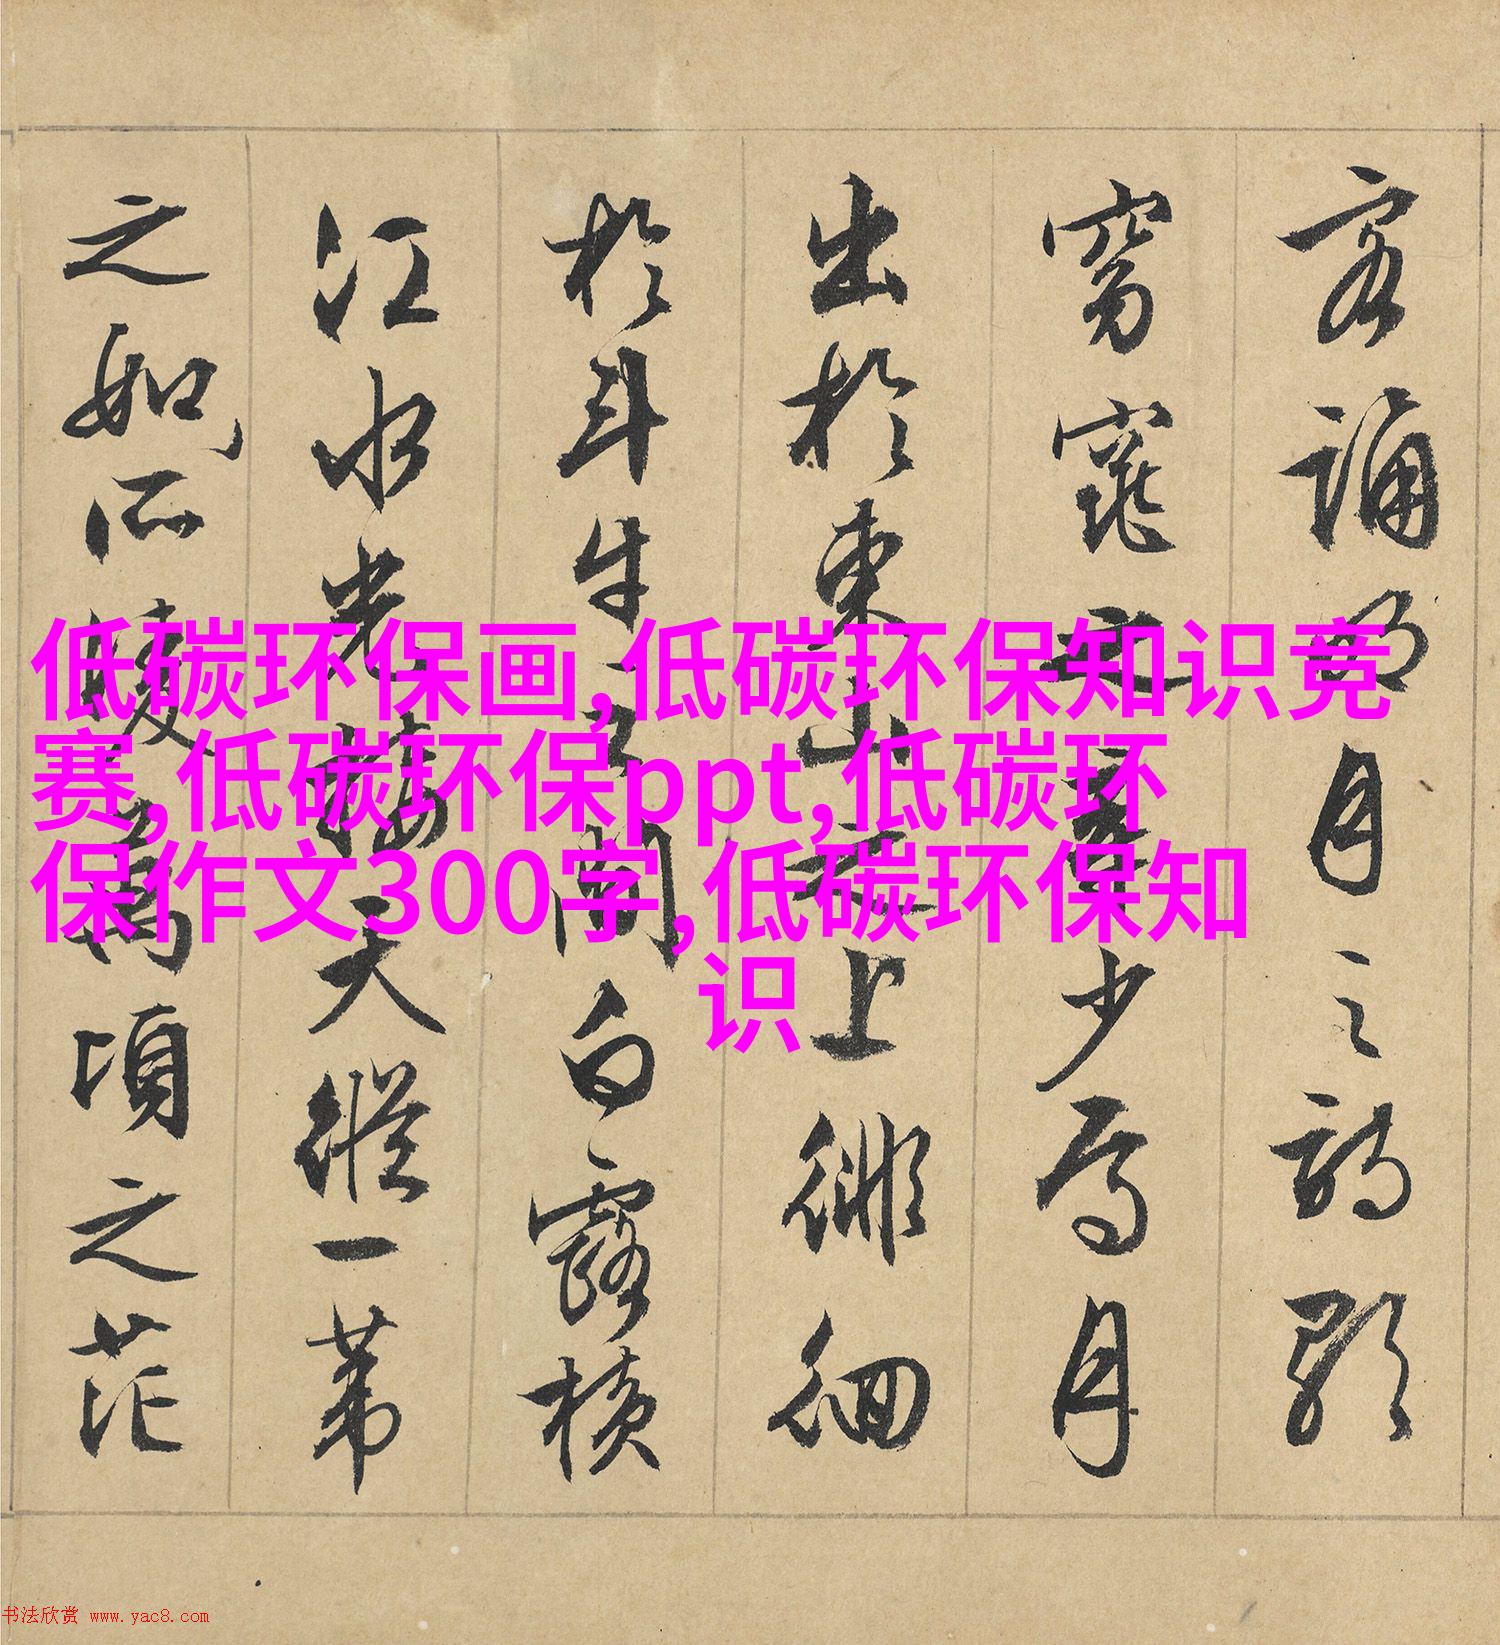 客誦明月之詩歌
窈窕之章少焉月
出於東山之上徘徊
於斗牛之間白露橫
江水光接天縱一葦
之如所凌萬頃之茫
低碳环保画,低碳环保知识竞
赛,低碳环保ppt,低碳环
保作文300字,低碳环保知
识
书法欣赏 www.yac8.com